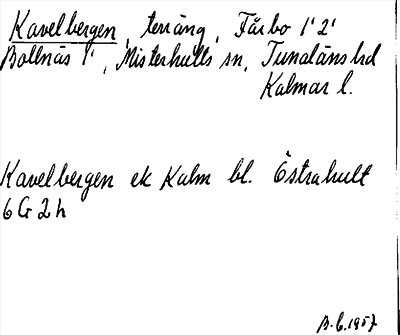 Kavelbergen, terräng, Fårbo 1' 2'
Bollnäs 1', Misterhults sn, Tunaläns hd
Kalmar l.
Kavelbergen ek Kalm bl. Östrahult
6 G 2 h
B.C. 1957